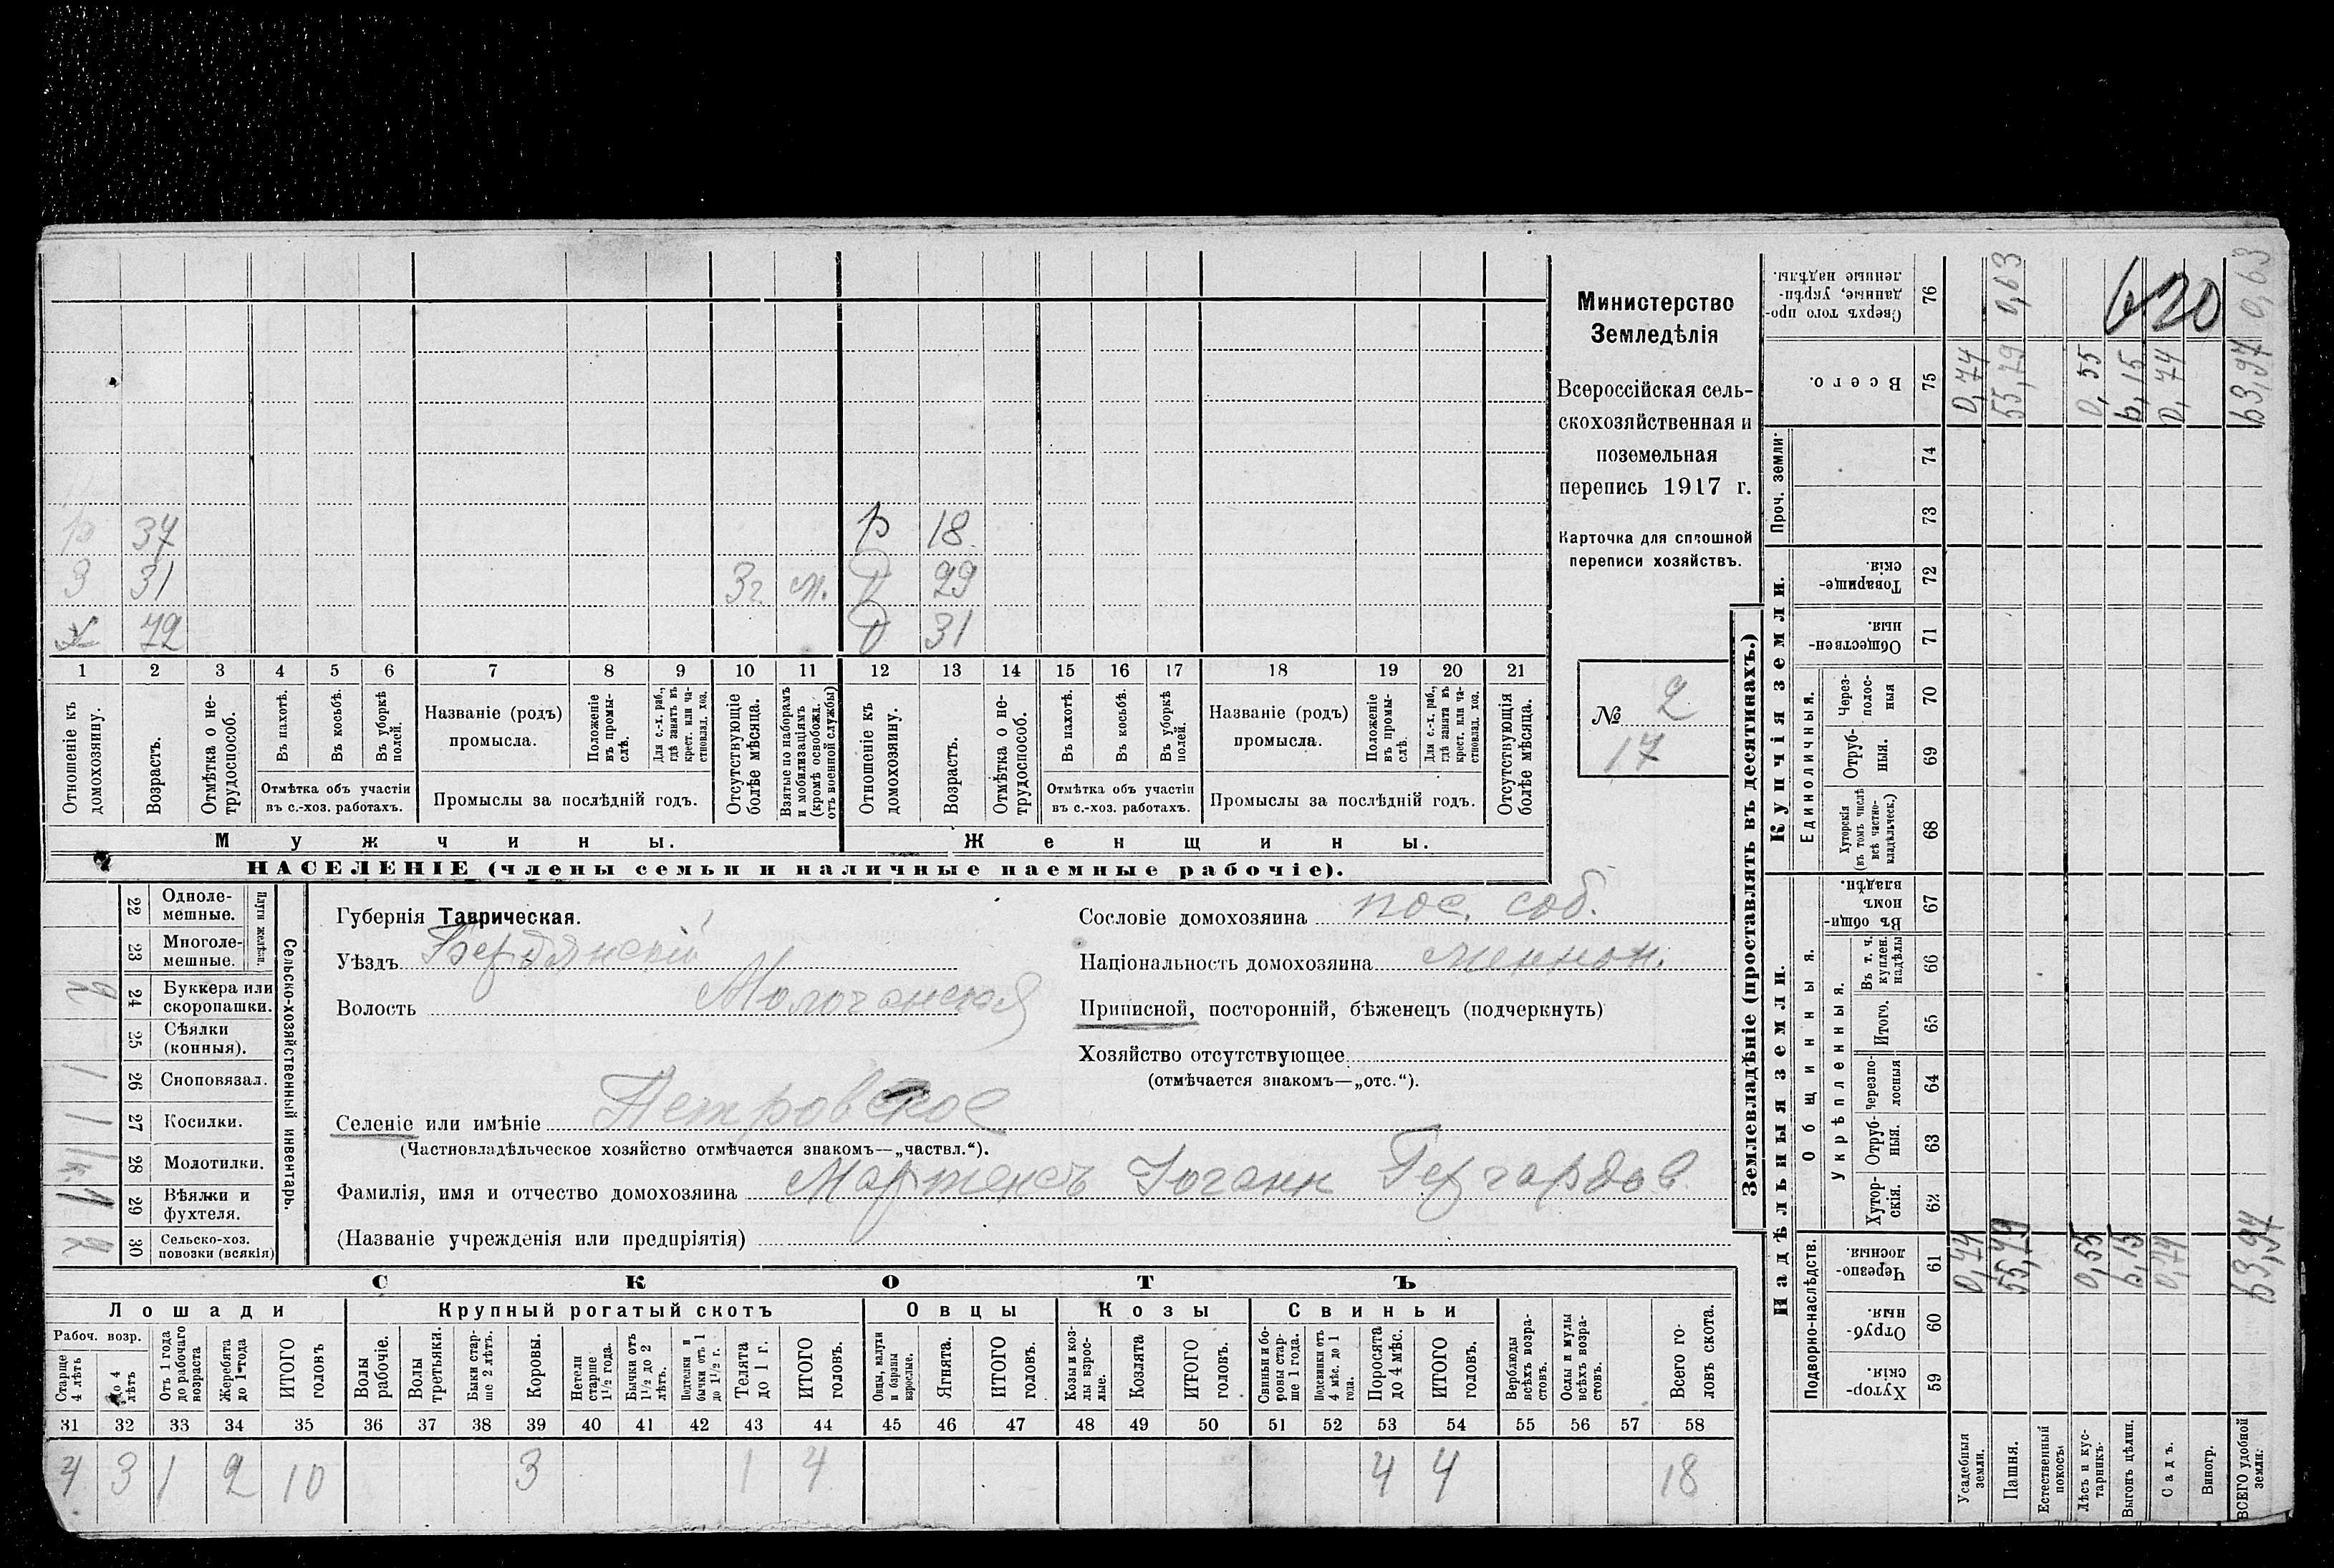 р 37 р 18
З 31 3 г. м. D 29
х 72 D 31
1 2 3 4 5 6 7 8 9 10 11 12 13 14 15 16 17 18 19 20 21
Отношеніе къ домохозяину.
Возрастъ.
Отмѣтка о не-
трудоспособ.
Въ пахотѣ.
Въ косьбѣ.
Въ уборкѣ
полей.
Отмѣтка объ участіи
въ с.-хоз. работахъ.
Названіе (родъ)
промысла.
Положеніе
въ промы-
слѣ.
Для с.-х. раб.,
гдѣ занятъ въ
крест. или ча-
стновлад. хоз.
Промыслы за послѣдній годъ.
Отсутствующіе
болѣе мѣсяца.
Взятые по наборамъ
и мобилизаціямъ
(кромѣ освобожд.
отъ военной службы)
Отношеніе къ
домохозяину.
Возрастъ.
Отмѣтка о не-
трудоспособ.
Въ пахотѣ.
Въ косьбѣ.
Въ уборкѣ
полей.
Отмѣтка объ участіи
въ с.-хоз. работахъ.
Названіе (родъ)
промысла.
Положеніе
въ промы-
слѣ.
Для с.-х. раб.,
гдѣ занята въ
крест. или ча-
стновлад. хоз.
Промыслы за послѣдній годъ.
Отсутствующія
болѣе мѣсяца.
Мужчины. Женщины.
НАСЕЛЕНІЕ (члены семьи и наличные наемные рабочіе).
Министерство
Земледѣлія
Всероссійская сель-
скохозяйственная и
поземельная
перепись 1917 г.
Карточка для сплошной
переписи хозяйствъ.
№ 2
17
Сельско-хозяйственный инвентарь.
Плуги желѣзн.
22 Одноле-
мешные.
23 Многоле-
мешные.
2 24 Буккера или
скоропашки.
25 Сѣялки
(конныя).
1 26 Сноповязал.
1 27 Косилки.
1 к. 28 Молотилки.
1 29 Вѣялки и
фухтеля.
2 30 Сельско-хоз.
повозки (всякія)
Губернія Таврическая.
Уѣздъ Бердянскій
Волость Молочанская
Селеніе или имѣніе Петровское
(Частновладѣльческое хозяйство отмѣчается знакомъ—„частвл.“).
Фамилія, имя и отчество домохозяина Мартенсъ Іоганн Гергардов
(Названіе учрежденія или предпріятія)
Сословіе домохозяина пос. соб.
Національность домохозяина меннон.
Приписной, посторонній, бѣженецъ (подчеркнуть)
Хозяйство отсутствующее
(отмѣчается знакомъ—„отс.“).
СКОТЪ
Лошади Крупный рогатый скотъ Овцы Козы Свиньи
Рабоч. возр.
Старше
4 лѣтъ
До 4
лѣтъ
Отъ 1 года
до рабочаго
возраста
Жеребята
до 1 года
ИТОГО
головъ
Волы
рабочіе.
Волы
третьяки.
Быки стар-
ше 2 лѣтъ.
Коровы.
Нетели
старше
1½ года.
Бычки отъ
1½ до 2
лѣтъ.
Подтелки и
бычки отъ 1
до 1½ г.
Телята
до 1 г.
ИТОГО
головъ.
Овцы, валухи
и бараны
взрослые.
Ягнята.
ИТОГО
головъ.
Козы и коз-
лы взрос-
лые.
Козлята
ИТОГО
головъ.
Свиньи и бо-
ровы стар-
ше 1 года.
Подсвинки отъ
4 мѣс. до 1
года.
Поросята
до 4 мѣс.
ИТОГО
головъ.
Верблюды
всѣхъ возра-
стовъ.
Ослы и мулы
всѣхъ возра-
стовъ.
Всего го-
ловъ скота.
31 32 33 34 35 36 37 38 39 40 41 42 43 44 45 46 47 48 49 50 51 52 53 54 55 56 57 58
4 3 1 2 10 3 1 4 4 4 18
Землевладѣніе (проставлять въ десятинахъ.)
Сверхъ того про-
данные, укрѣп-
ленные надѣлы.
76 0,63 0,63
620
Всего.
75 0,74 55,79 0,55 6,15 0,74 63,97
Проч. земли:
74
73
Купчія земли.
Товарище-
скія.
72
Обществен-
ныя.
71
Единоличныя.
Через-
полос-
ныя
70
Отруб-
ныя.
69
Хуторскія
(въ томъ числѣ
всѣ частно-
владѣльческ.)
68
Надѣльныя земли.
Общинныя.
Въ общин-
номъ
владѣн.
67
Укрѣпленныя.
Въ т. ч.
куплен.
надѣлы
66
Итого.
65
Черезпо-
лосныя
64
Отруб-
ныя.
63
Хутор-
скія.
62
Подворно-наслѣдств.
Черезпо-
лосныя.
61 0,74 55,79 0,55 6,15 0,74 63,97
Отруб-
ныя.
60
Хутор-
скія.
59
Усадебныя
земли.
Пашня.
Естественный
покосъ
Лѣсъ и кус-
тарникъ.
Выгонъ цѣлин.
Садъ.
Виногр.
ВСЕГО удобной
земли.